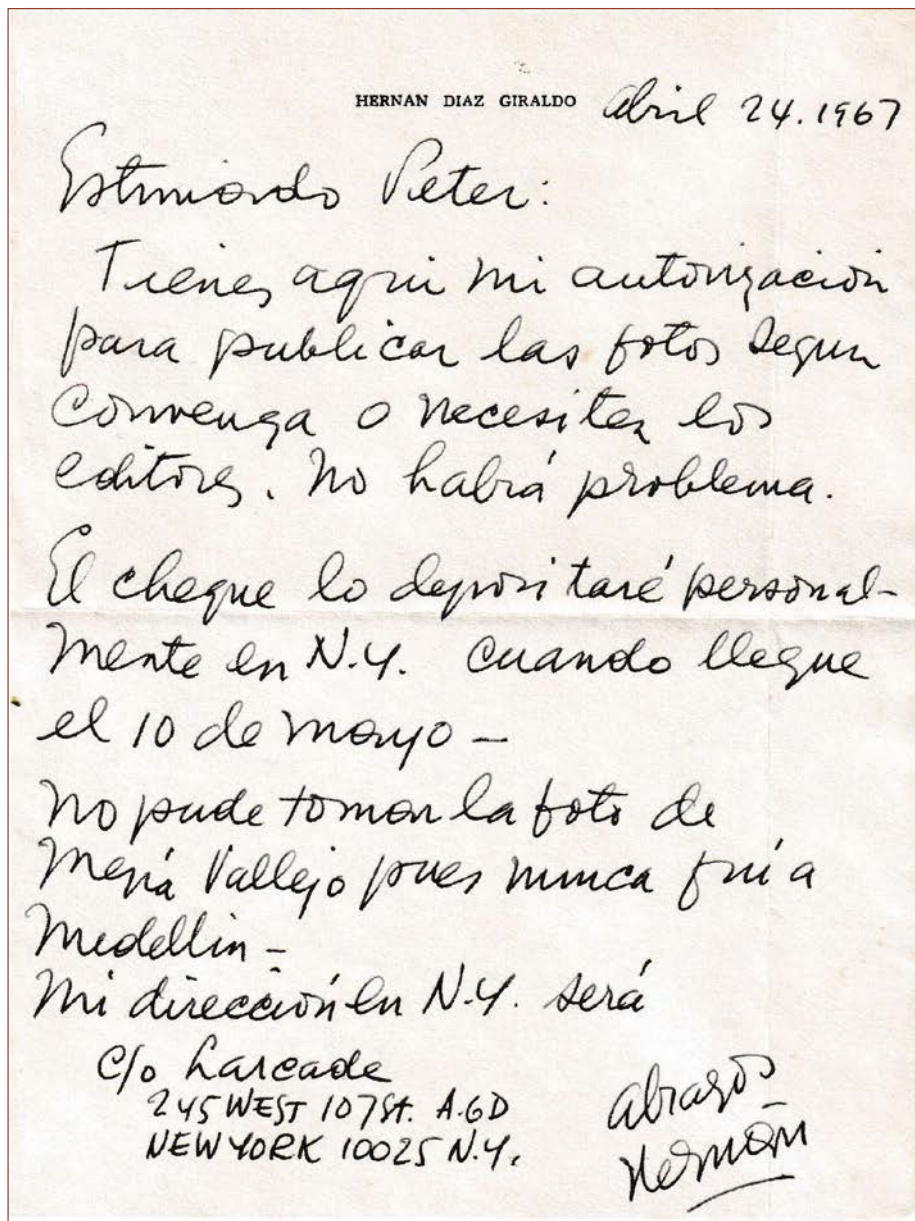 HERNAN DIAZ GIRALDO
abril 24.1967
Estimado Peter:
Tienes aqui mi autorización
para publicar las fotos segun
convenga o necesiten los
editores. No habrá problema.
El cheque lo depositaré personal-
mente en N.Y. cuando llegue
el 10 de mayo -
No pude tomar la foto de
Mejía Vallejo pues nunca fuí a
Medellin -
Mi dirección en N.Y. será
c/o Larcade
245 WEST 107 St. A.6D
NEW YORK 10025 N.Y.
abrazos
Hernán